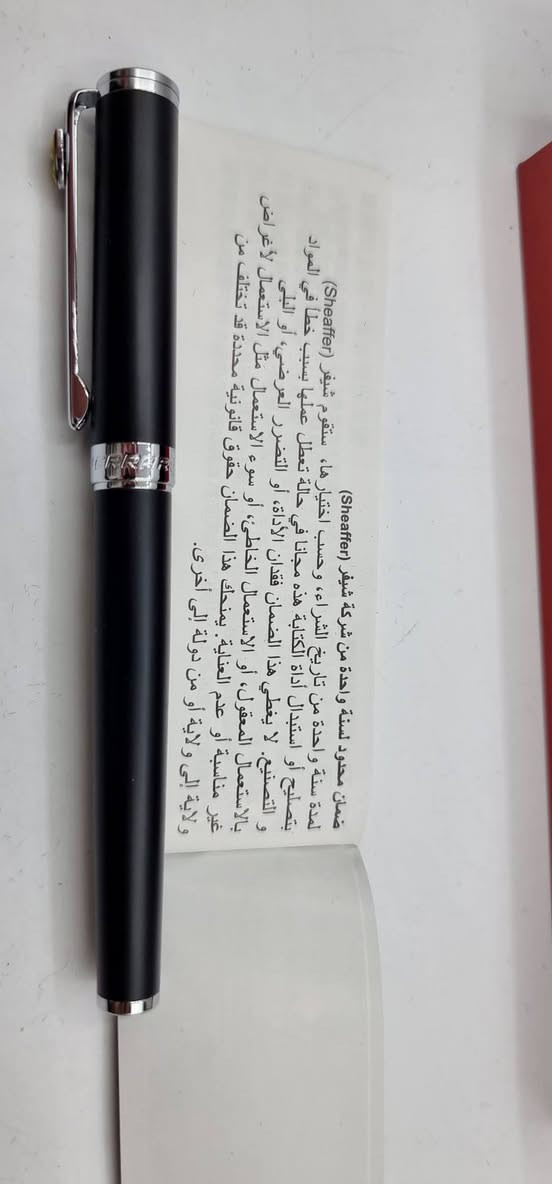 ضمان محدود لسنة واحدة من شركة شيفر (Sheaffer)
لمدة سنة واحدة من تاريخ الشراء، وحسب اختيارها، ستقوم شيفر (Sheaffer)
بتصليح أو استبدال أداة الكتابة هذه مجانا في حالة تعطل عملها بسبب خطأ في المواد
و التصنيع. لا يغطي هذا الضمان فقدان الأداة، أو التضرر العرضي، أو البلى
بالاستعمال المعقول، أو الاستعمال الخاطئ، أو سوء الاستعمال مثل الاستعمال لأغراض
غير مناسبة أو عدم العناية. يمنحك هذا الضمان حقوق قانونية محددة قد تختلف من
ولاية إلى ولاية أو من دولة إلى أخرى.
FERRARI